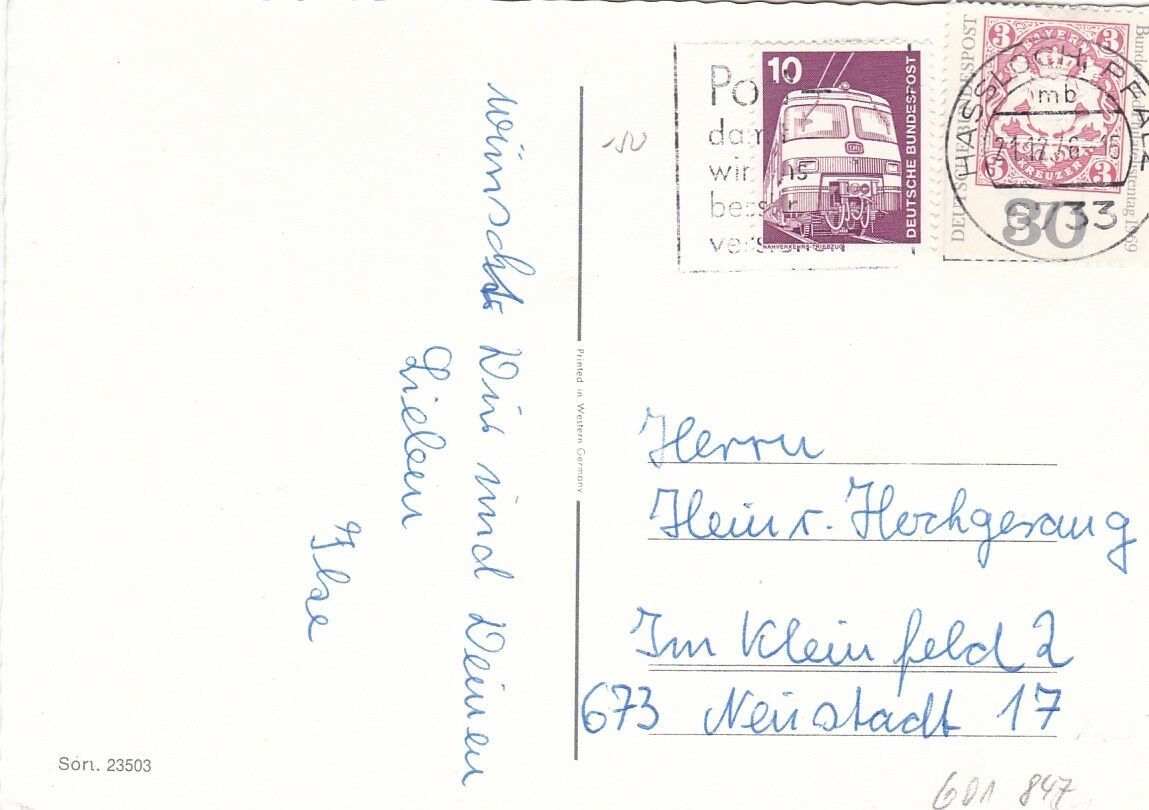 wünscht Dir und Deinen
Lieben
Ilse
Printed in Western Germany
Sort. 23503
Post –
damit
wir uns
besser
verstehen
10
DEUTSCHE BUNDESPOST
NAHVERKEHRS-TRIEBZUG
DEUTSCHE BUNDESPOST
3 BAYERN 3
3 KREUZER 3
80
HASSLOCH, PFALZ
mb
6733
Herrn
Heinr. Hochgesang
Im Kleinfeld 2
673 Neustadt 17
601 847